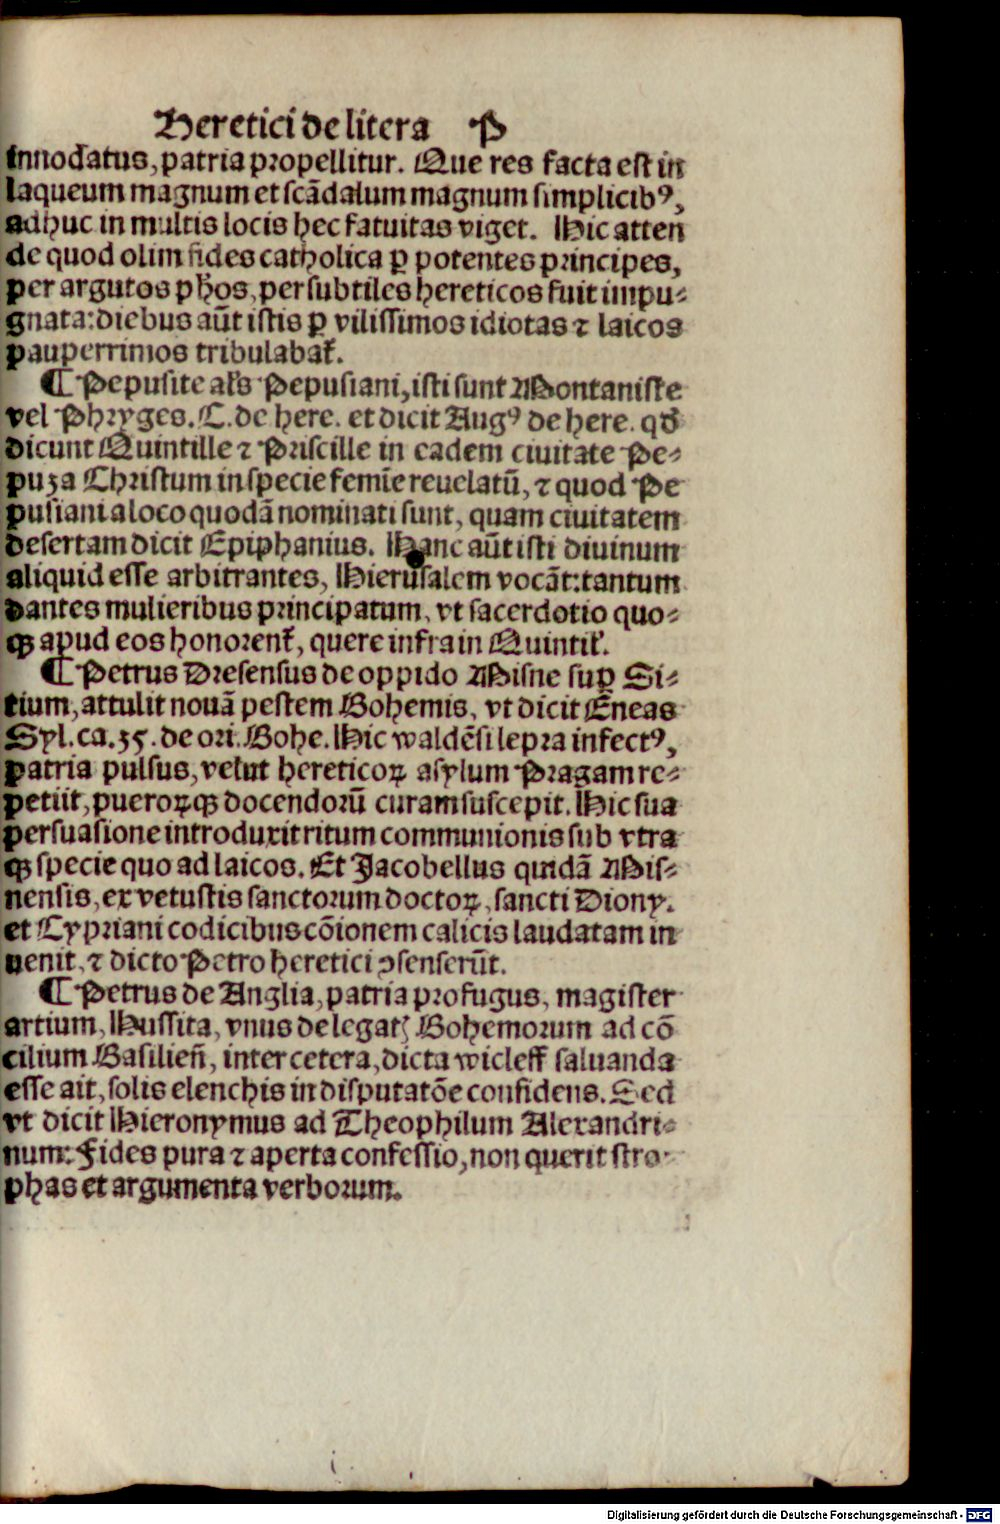 Heretici de litera P
innodatus, patria propellitur. Que res facta est in
laqueum magnum et scãdalum magnum simplicibꝰ,
adhuc in multis locis hec fatuitas viget. Hic atten
de quod olim fides catholica ꝑ potentes principes,
per argutos pħos, per subtiles hereticos fuit impu⸗
gnata: diebus aũt istis ꝑ vilissimos idiotas ⁊ laicos
pauperrimos tribulabat̃.
¶ Pepusite al̃s Pepusiani, isti sunt Montaniste
vel Phryges. C. de here. et dicit Augꝰ de here. qđ
dicunt Quintille ⁊ Priscille in eadem ciuitate Pe⸗
puza Christum in specie femĩe reuelatũ, ⁊ quod Pe
pusiani a loco quodã nominati sunt, quam ciuitatem
desertam dicit Epiphanius. Hanc aũt isti diuinum
aliquid esse arbitrantes, Hierusalem vocãt: tantum
dantes mulieribus principatum, vt sacerdotio quo⸗
qꝫ apud eos honorent̃, quere infra in Quintil̃.
¶ Petrus Dresensus de oppido Misne suꝑ Si⸗
tium, attulit nouã pestem Bohemis, vt dicit Eneas
Syl. ca. 35. de ori. Bohe. Hic waldẽsi lepra infectꝰ,
patria pulsus, velut hereticoꝝ asylum Pragam re⸗
petiit, pueroꝝqꝫ docendorũ curam suscepit. Hic sua
persuasione introduxit ritum communionis sub vtra
qꝫ specie quo ad laicos. Et Jacobellus quidã Mis⸗
nensis, ex vetustis sanctorum doctoꝝ, sancti Diony.
et Cypriani codicibus cõionem calicis laudatam in
uenit, ⁊ dicto Petro heretici ↄsenserũt.
¶ Petrus de Anglia, patria profugus, magister
artium, Hussita, vnus de legatꝭ Bohemorum ad cõ
cilium Basilieñ, inter cetera, dicta wicleff saluanda
esse ait, solis elenchis in disputatõe confidens. Sed
vt dicit Hieronymus ad Theophilum Alexandri⸗
num: Fides pura ⁊ aperta confessio, non querit stro⸗
phas et argumenta verborum.
Digitalisierung gefördert durch die Deutsche Forschungsgemeinschaft - DFG